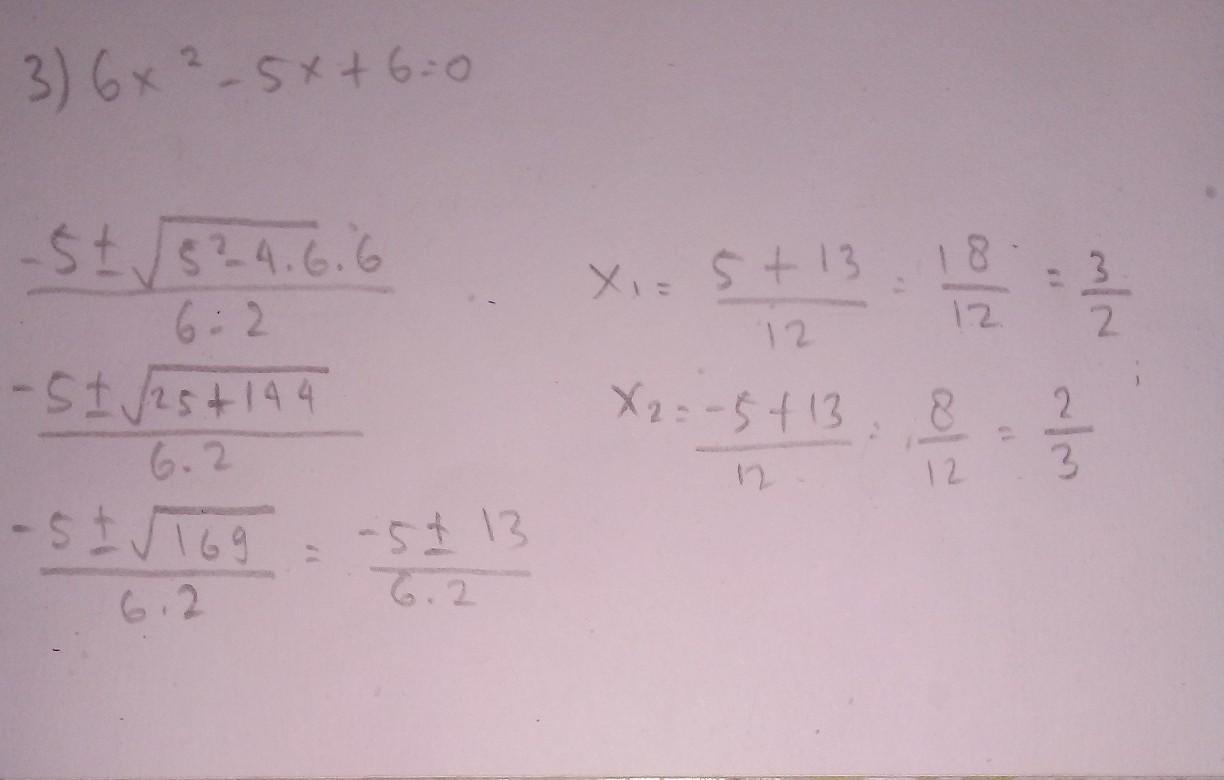 3) 6x² - 5x + 6 = 0
-5 ± √5² - 4.6.6 / 6.2
-5 ± √25 + 144 / 6.2
-5 ± √169 / 6.2 = -5 ± 13 / 6.2
x₁ = 5 + 13 / 12 = 18 / 12 = 3 / 2
x₂ = -5 + 13 / 12 = 8 / 12 = 2 / 3